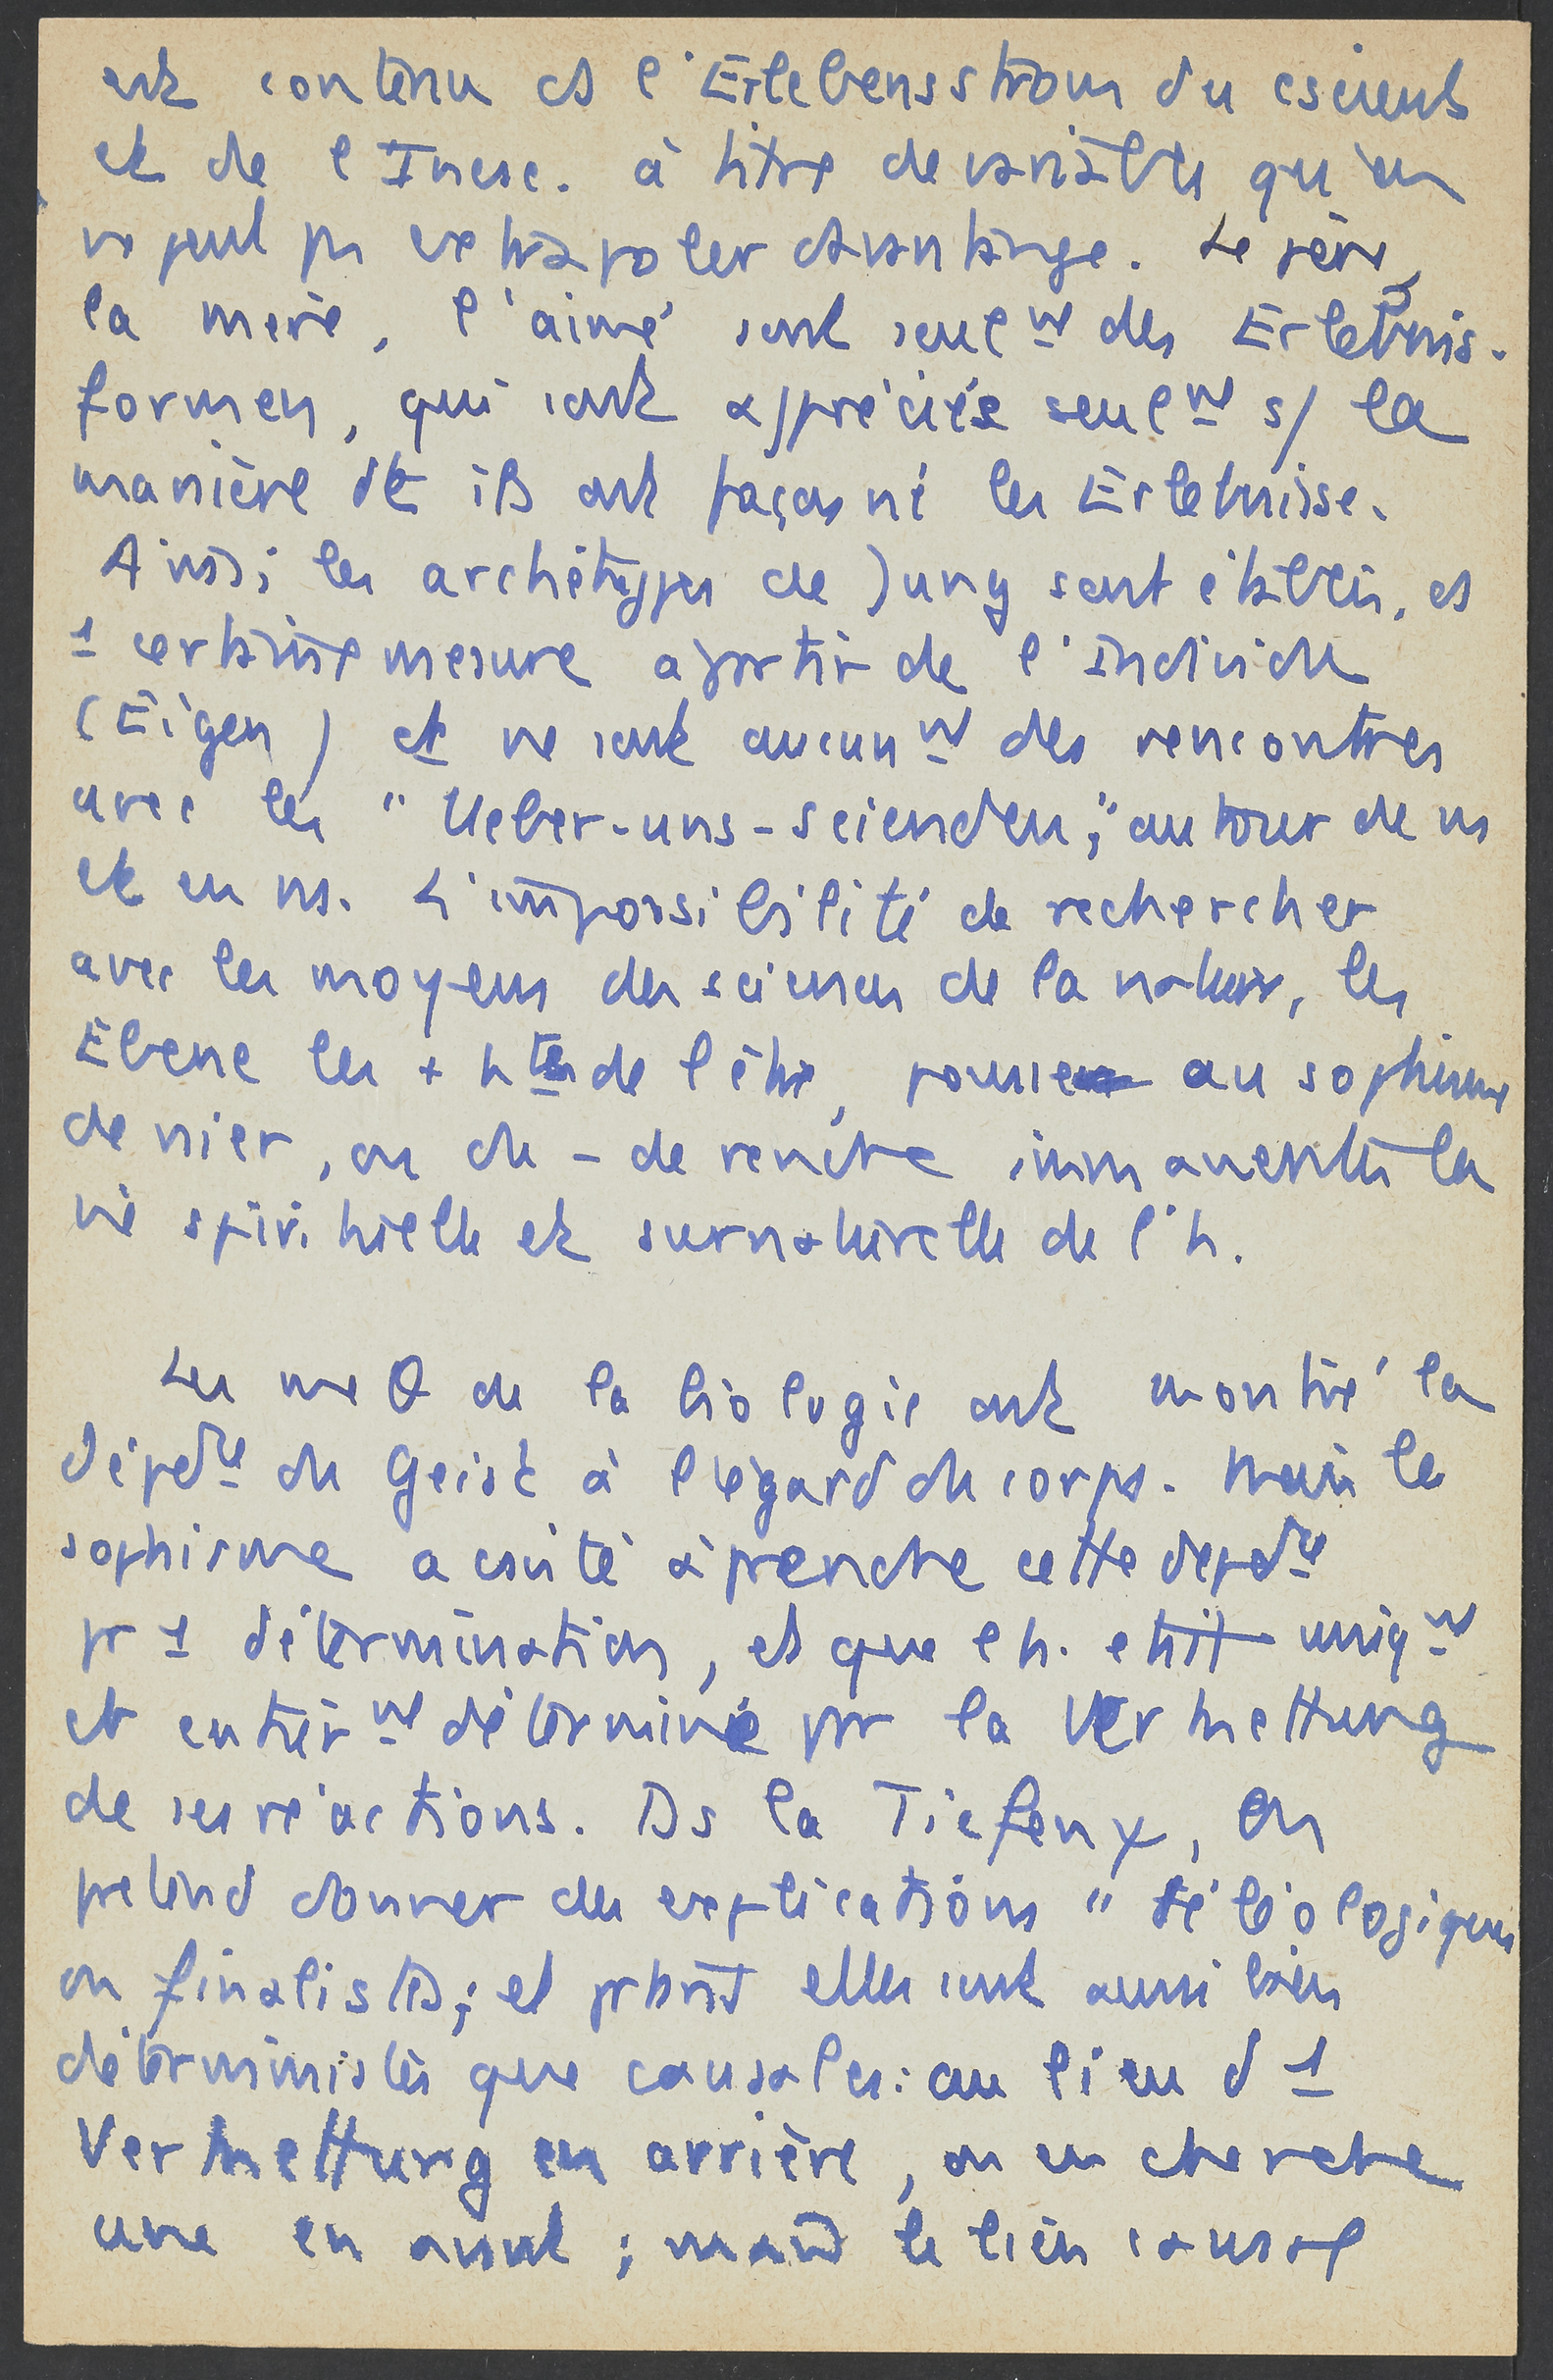 est contenu ds l'Erlebensstrom du csient
et de l'Incsc. à titre de variable, qu'on
ne peut pas extrapoler davantage. Le père,
la mère, l'aimé sont seulnt des Erlebnis-
formen, qui sont appréciés seulnt s/ la
manière dt ils ont façonné les Erlebnisse.
Ainsi les archétypes de Jung sont établis, ds
1 certaine mesure à partir de l'individu
(Eigen) et ne sont aucunnt des rencontres
avec les "Ueber-uns-seienden," autour de ns
et en ns. L'impossibilité de rechercher
avec les moyens des sciences de la nature, les
Ebene les + htes de l'être, pousse au sophisme
de nier, ou du - de rendre immanentes la
vie spirituelle et surnaturelle de l'h.
Les me θ de la biologie ont montré la
dépdce du Geist à l'égard du corps. Mais le
sophisme a csisté à prendre cette depdce
pr 1 détermination, et que l'h. était uniqnt
et entièrnt déterminé par la Verkettung
de ses réactions. Ds la Tiefenψ, on
prétend donner des explications "téléologiques
ou finalistes; et prtant elles sont aussi bien
déterministes que causales: au lieu d'1
Verkettung en arrière, on en cherche
une en avant; mais le lien causal